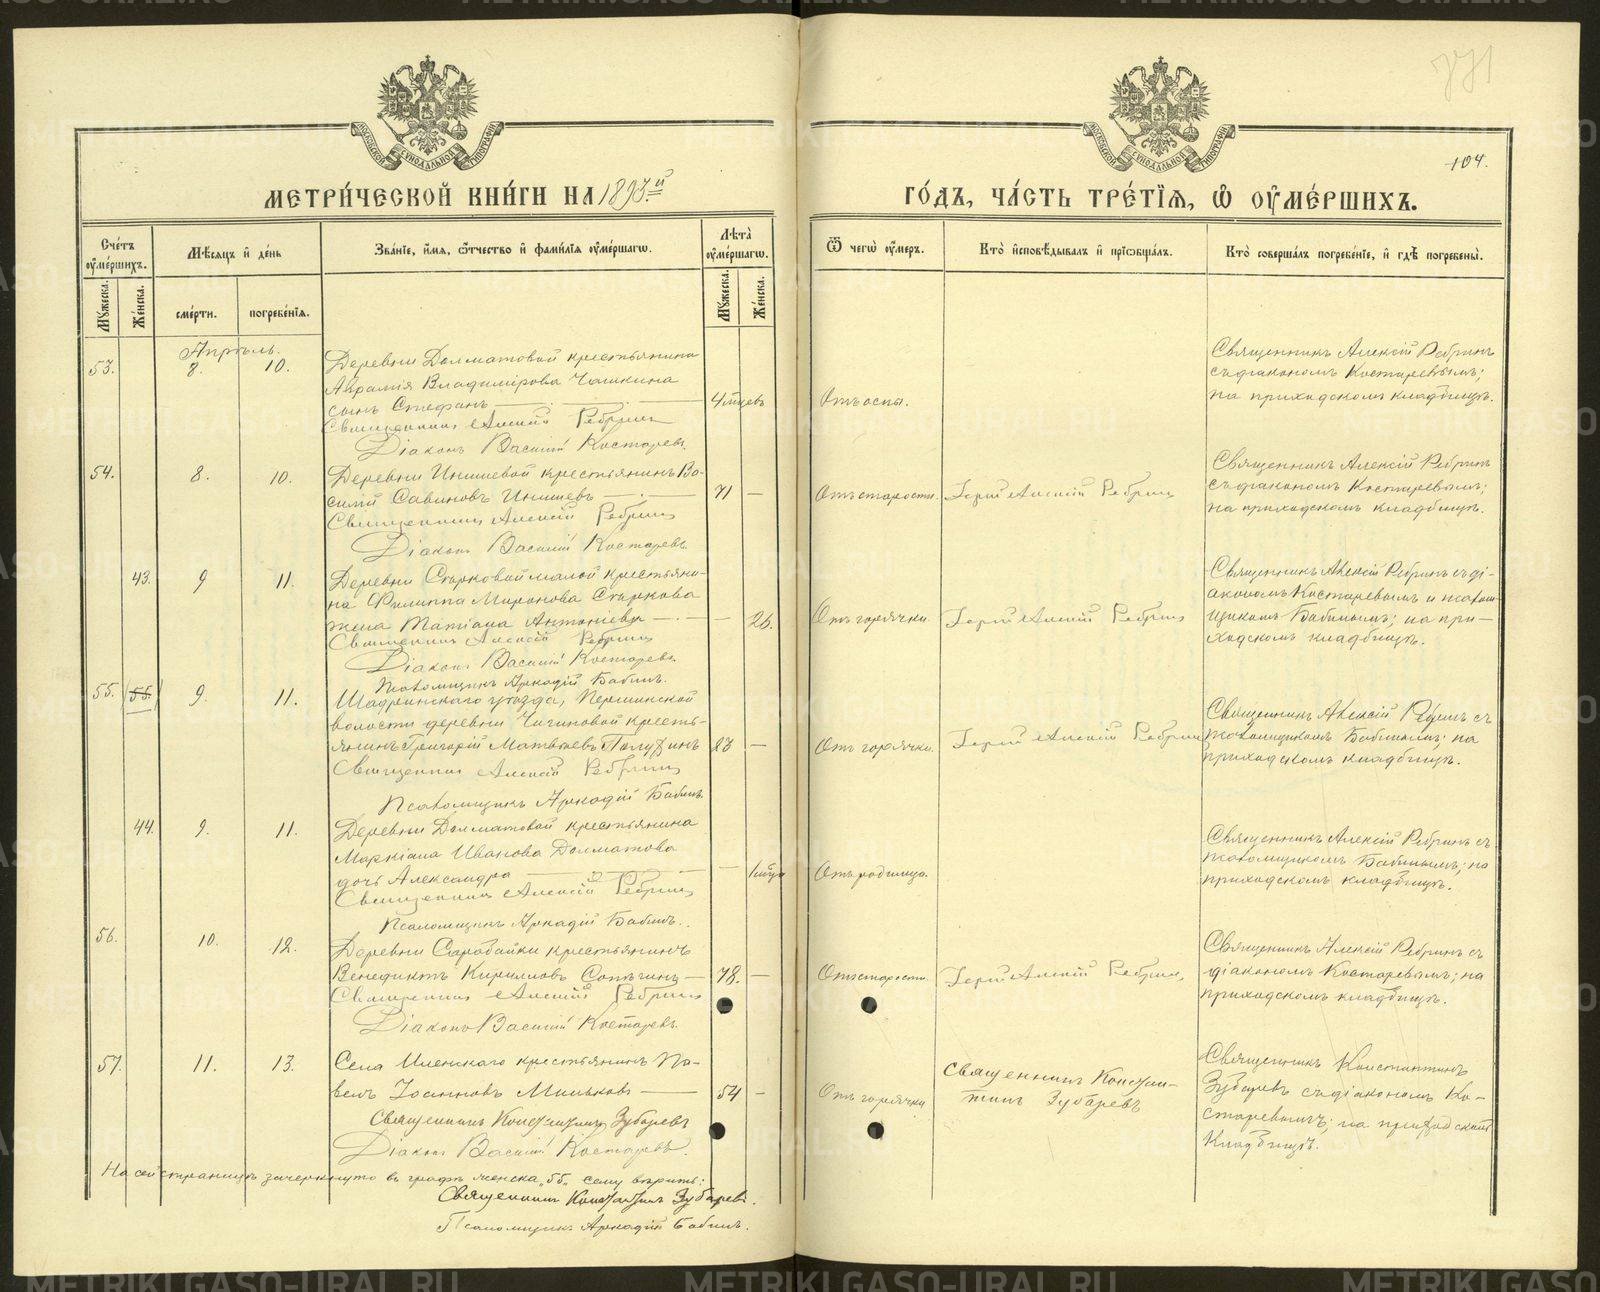 771
104.
МЕТРИ́ЧЕСКОЙ КНИ́ГИ НА 1893.й
ГО́ДЪ, ЧА́СТЬ ТРЕ́ТІѦ, Ѽ ОУ҆МЕ́РШИХЪ.
Сче́тъ оу҆ме́ршихъ.
Мꙋжеска.
Же́нска.
Мѣ́сяцъ и҆ де́нь
сме́рти.
погребе́нїѧ.
Зва́нїе, и҆́мя, ѻ҆́тчество и҆ фами́лїѧ оу҆ме́ршагѡ.
Лѣ́та оу҆ме́ршагѡ.
Мꙋ́жеска.
Же́нска.
Ѿ чегѡ̀ оу҆́меръ.
Кто̀ и҆сповѣ́дывалъ и҆ прїѡбща́лъ.
Кто̀ соверша́лъ погребе́нїе, и҆ гдѣ̀ погребены̀.
Апрѣль.
53.
8.
10.
Деревни Долматовой крестьянина
Авраамія Владимірова Чашкина
сынъ Стефанъ
Священникъ Алексій Ребринъ
Діаконъ Василій Костаревъ.
4 мцевъ
Отъ оспы.
Священникъ Алексій Ребринъ
съ діакономъ Костаревымъ;
на приходскомъ кладбищѣ.
54.
8.
10.
Деревни Инишевой крестьянинъ Ва-
силій Савиновъ Инишевъ
Священникъ Алексій Ребринъ
Діаконъ Василій Костаревъ.
71
Отъ старости.
Іерей Алексій Ребринъ
Священникъ Алексій Ребринъ
съ діакономъ Костаревымъ;
на приходскомъ кладбищѣ.
43.
9
11.
Деревни Старковой малой крестьяни-
на Филиппа Миронова Старкова
жена Татіана Антоніева
Священникъ Алексій Ребринъ
Діаконъ Василій Костаревъ.
Псаломщикъ Аркадій Бабинъ.
26.
Отъ горячки.
Іерей Алексій Ребринъ
Священникъ Алексій Ребринъ съ ді-
акономъ Костаревымъ и псалом-
щикомъ Бабинымъ; на при-
ходскомъ кладбищѣ.
55.
(55.)
9.
11.
Шадринскаго уѣзда, Першинской
волости деревни Чигиновой кресть-
янинъ Григорій Матвѣевъ Полухинъ
Священникъ Алексій Ребринъ
Псаломщикъ Аркадій Бабинъ.
23
Отъ горячки.
Іерей Алексій Ребринъ
Священникъ Алексій Ребринъ съ
псаломщикомъ Бабинымъ; на
приходскомъ кладбищѣ.
44.
9.
11.
Деревни Долматовой крестьянина
Маркіана Иванова Долматова
дочь Александра
Священникъ Алексій Ребринъ
Псаломщикъ Аркадій Бабинъ.
1 мца
Отъ родимца.
Священникъ Алексій Ребринъ съ
псаломщикомъ Бабинымъ; на
приходскомъ кладбищѣ.
56.
10.
12.
Деревни Сарабайки крестьянинъ
Венедиктъ Кириловъ
Священникъ Алексій Ребринъ
Діаконъ Василій Костаревъ.
78.
Отъ старости.
Іерей Алексій Ребринъ.
Священникъ Алексій Ребринъ съ
діакономъ Костаревымъ; на
приходскомъ кладбищѣ.
57.
11.
13.
Села Иленскаго крестьянинъ Па-
велъ Іоанновъ Миньковъ
Священникъ Константинъ Зубаревъ
Діаконъ Василій Костаревъ.
54
Отъ горячки
Священникъ Констан-
тинъ Зубаревъ
Священникъ Константинъ
Зубаревъ съ діакономъ Ко-
старевымъ; на приходскомъ
кладбищѣ.
На сей страницѣ зачеркнуто въ графѣ женска „55" сему вѣрить:
Священникъ Константинъ Зубаревъ.
Псаломщикъ Аркадій Бабинъ.
METRIKI.GASO-URAL.RU